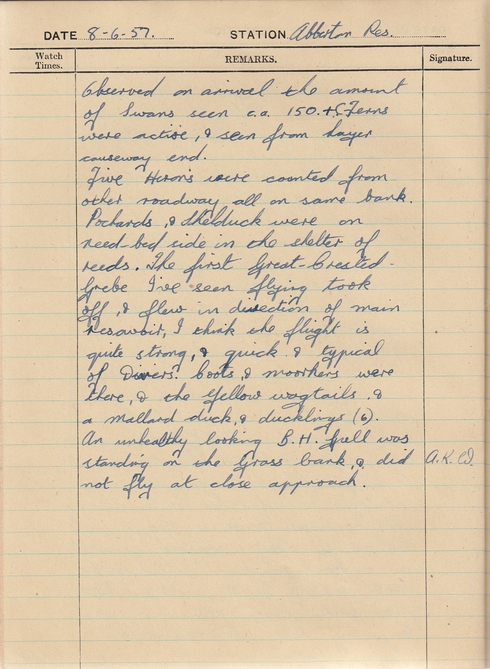 DATE 8-6-57. STATION Abberton Res.
Watch Times. REMARKS. Signature.
Observed on arrival the amount
of Swans seen c.a. 150. + C Terns
were active, & seen from Layer
causeway end.
Five Herons were counted from
other roadway, all on same bank.
Pochards, & Shelduck were on
reed-bed side in the shelter of
reeds. The first Great-Crested-
Grebe I've seen flying took
off, & flew in direction of main
resavoir, I think the flight is
quite strong, & quick & typical
of Divers. Coots, & moorhens were
there, & the Yellow wagtails, &
a Mallard duck, & ducklings (6).
An unhealthy looking B. H. Gull was
standing on the Grass bank, & did A.K.W.
not fly at close approach.